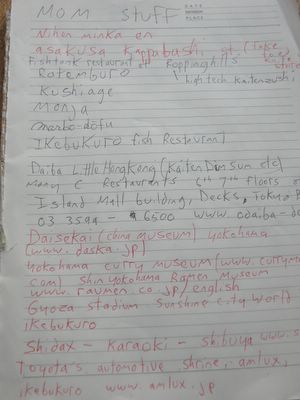 MOM stuff
DATE
PLACE
Nihon minka en
asakusa Kappabashi st. (Take
Fishtank restaurant at Roppingihills
Rotemburo
hightech kaitenzushi
Kushiage
Monja
marbo-dofu
IKebuKuro fish Restaurant
Daiba Little HongKong (Kaiten Dim Sum etc)
Many C Restaurants 6th 7th floors of
Island Mall building, Decks, tokyo
03 3599 - 6500 www.odaiba-de
Daisekai (china museum) yokohama
(www.daska.jp)
yokohama curry museum (www.currymu
com) Shin yokohama Ramen Museum
www.raumen.co.jp/english
Gyoza stadium Sunshine City World
ikebukuro
Shidax - karaoki - shibuya www.s
Toyota's automotive shrine, amlux,
ikebukuro www.amlux.jp